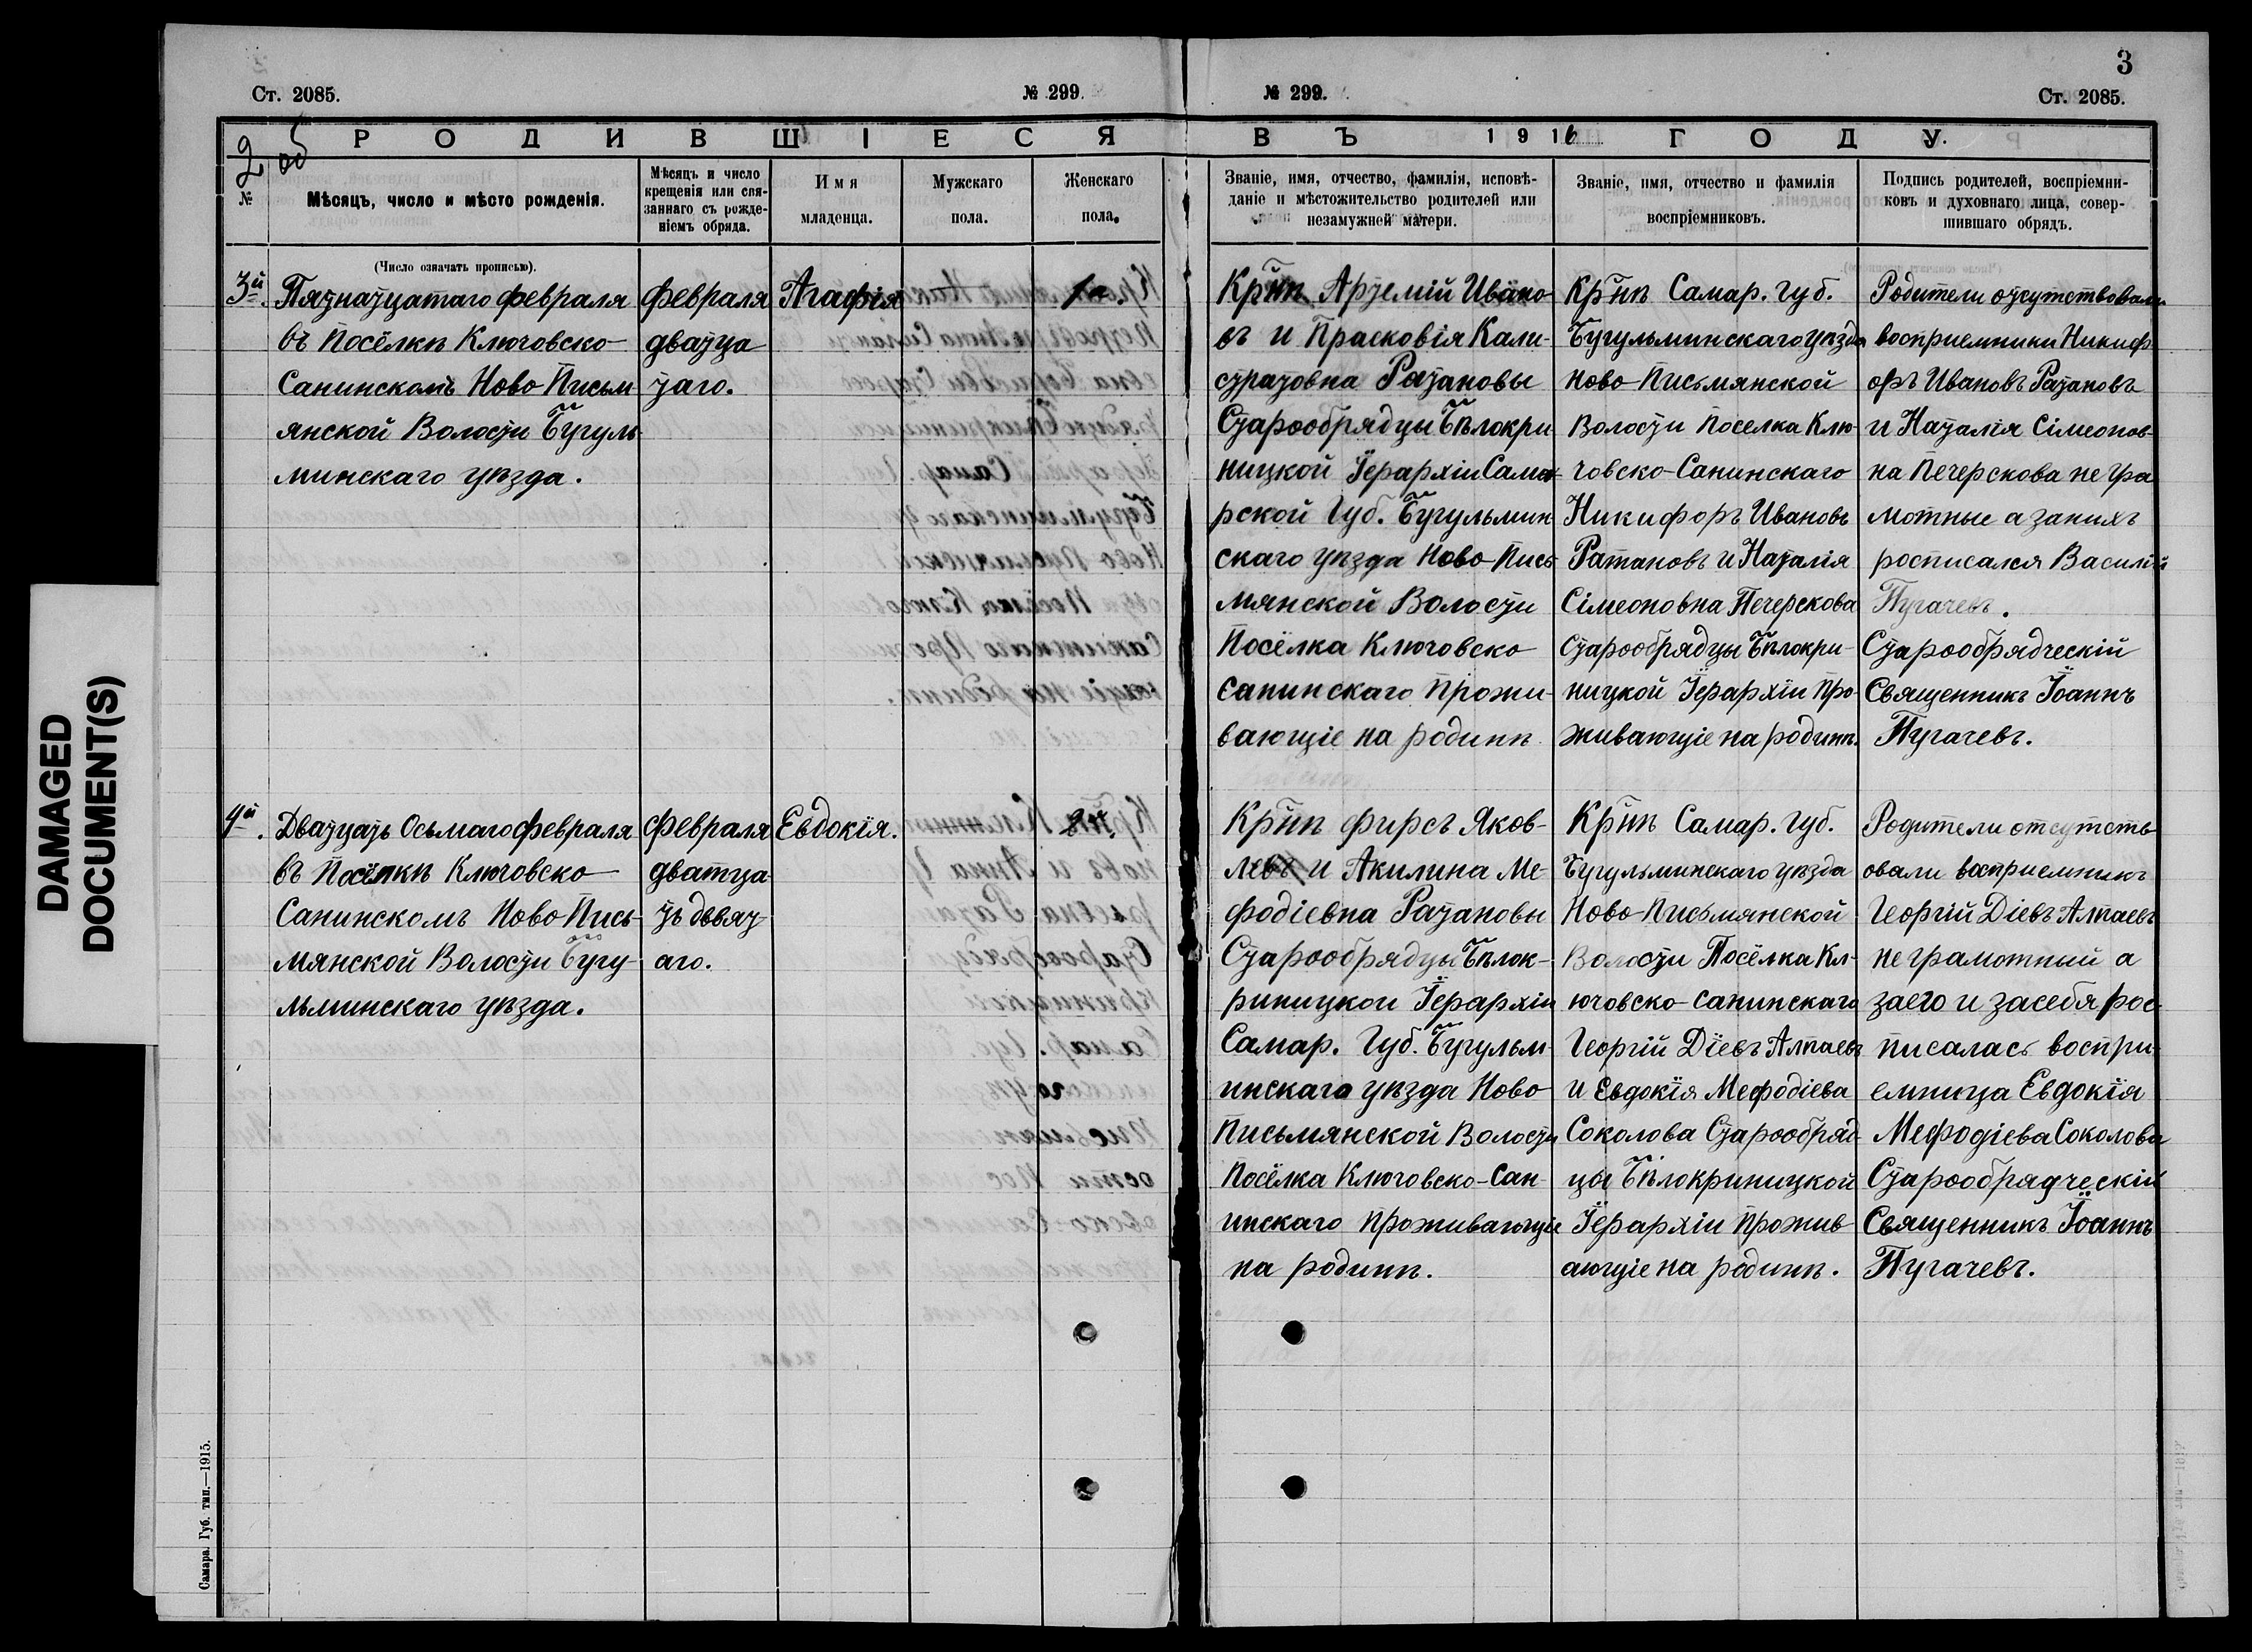 3
Ст. 2085.
№ 299.
№ 299.
Ст. 2085.
РОДИВШІЕСЯ
ВЪ 1916 ГОДУ.
№
Мѣсяцъ, число и мѣсто рожденія.
Мѣсяцъ и число
крещенія или свя-
заннаго съ рожде-
ніемъ обряда.
Имя
младенца.
Мужскаго
пола.
Женскаго
пола.
Званіе, имя, отчество, фамилія, исповѣ-
даніе и мѣстожительство родителей или
незамужней матери.
Званіе, имя, отчество и фамилія
воспріемниковъ.
Подпись родителей, воспріемни-
ковъ и духовнаго лица, совер-
шившаго обрядъ.
(Число означать прописью).
3й.
Пятнатцатаго февраля
въ посёлкѣ Ключовско-
Санинскомъ Ново Письм
янской Волости Бугуль
минскаго уѣзда.
февраля
дватца
таго.
Агафія
1я.
Крѣпѣ Артемій Ивано-
въ и Прасковія Кали-
стратовна Ратановы
Старообрядцы Бѣлокри
ницкой Іерархіи Сама
рской Губ. Бугульмин
скаго уѣзда Ново-Пись
мянской Волости
Посёлка Ключовско
санинскаго прожи-
вающіе на родинѣ
Крѣпѣ Самар. губ.
Бугульминскаго уѣзда
Ново-Письмянской
Волости поселка Клю-
човско-Санинскаго
Никифоръ Ивановъ
Ратановъ и Наталія
Сімеоновна Печерскова
Старообрядцы Бѣлокри-
ницкой Іерархіи про-
живающіе на родинѣ.
Родители отсутствовали
восприемники Никиф
оръ Ивановъ Ратановъ
и Наталія Сімеонов-
на Печерскова не гра
мотные а занихъ
росписался Василій
Пугачевъ.
Старообрядческій
Священникъ Іоаннъ
Пугачевъ.
4й.
Дватцать Осьмаго февраля
въ посёлкѣ Ключовско
Санинскомъ Ново Пись-
мянской Волости Бугу-
льминскаго уѣзда.
февраля
дватца-
ть дѣвят-
аго.
Евдокія.
2я.
Крѣпѣ фирсъ Яков-
левъ и Акилина Ме-
фодіевна Ратановы
Старообрядцы Бѣлок-
риницкои Іерархіи
Самар. Губ. Бугульм-
инскаго уѣзда Ново
Письмянской Волости
посёлка Ключовско-Сан-
инскаго проживающіе
на родинѣ.
Крѣпѣ Самар. губ.
Бугульминскаго уѣзда
Ново-Письмянской
Волости Посёлка Кл-
ючовско-санинскаго
Георгій Діевъ Алпаевъ
и Евдокія Мефодіева
Соколова Старообряд-
цы Бѣлокриницкой
Іерархіи прожив-
ающіе на родинѣ.
Родители отсутств
овали восприемникъ
Георгій Діевъ Алпаевъ
не грамотный а
заего и засебя рос-
писалась воспри-
емница Евдокія
Мефодіева Соколова
Старообрядческій
Священникъ Іоаннъ
Пугачевъ.
Самара. Губ. тип.—1915.
DAMAGED
DOCUMENT(S)